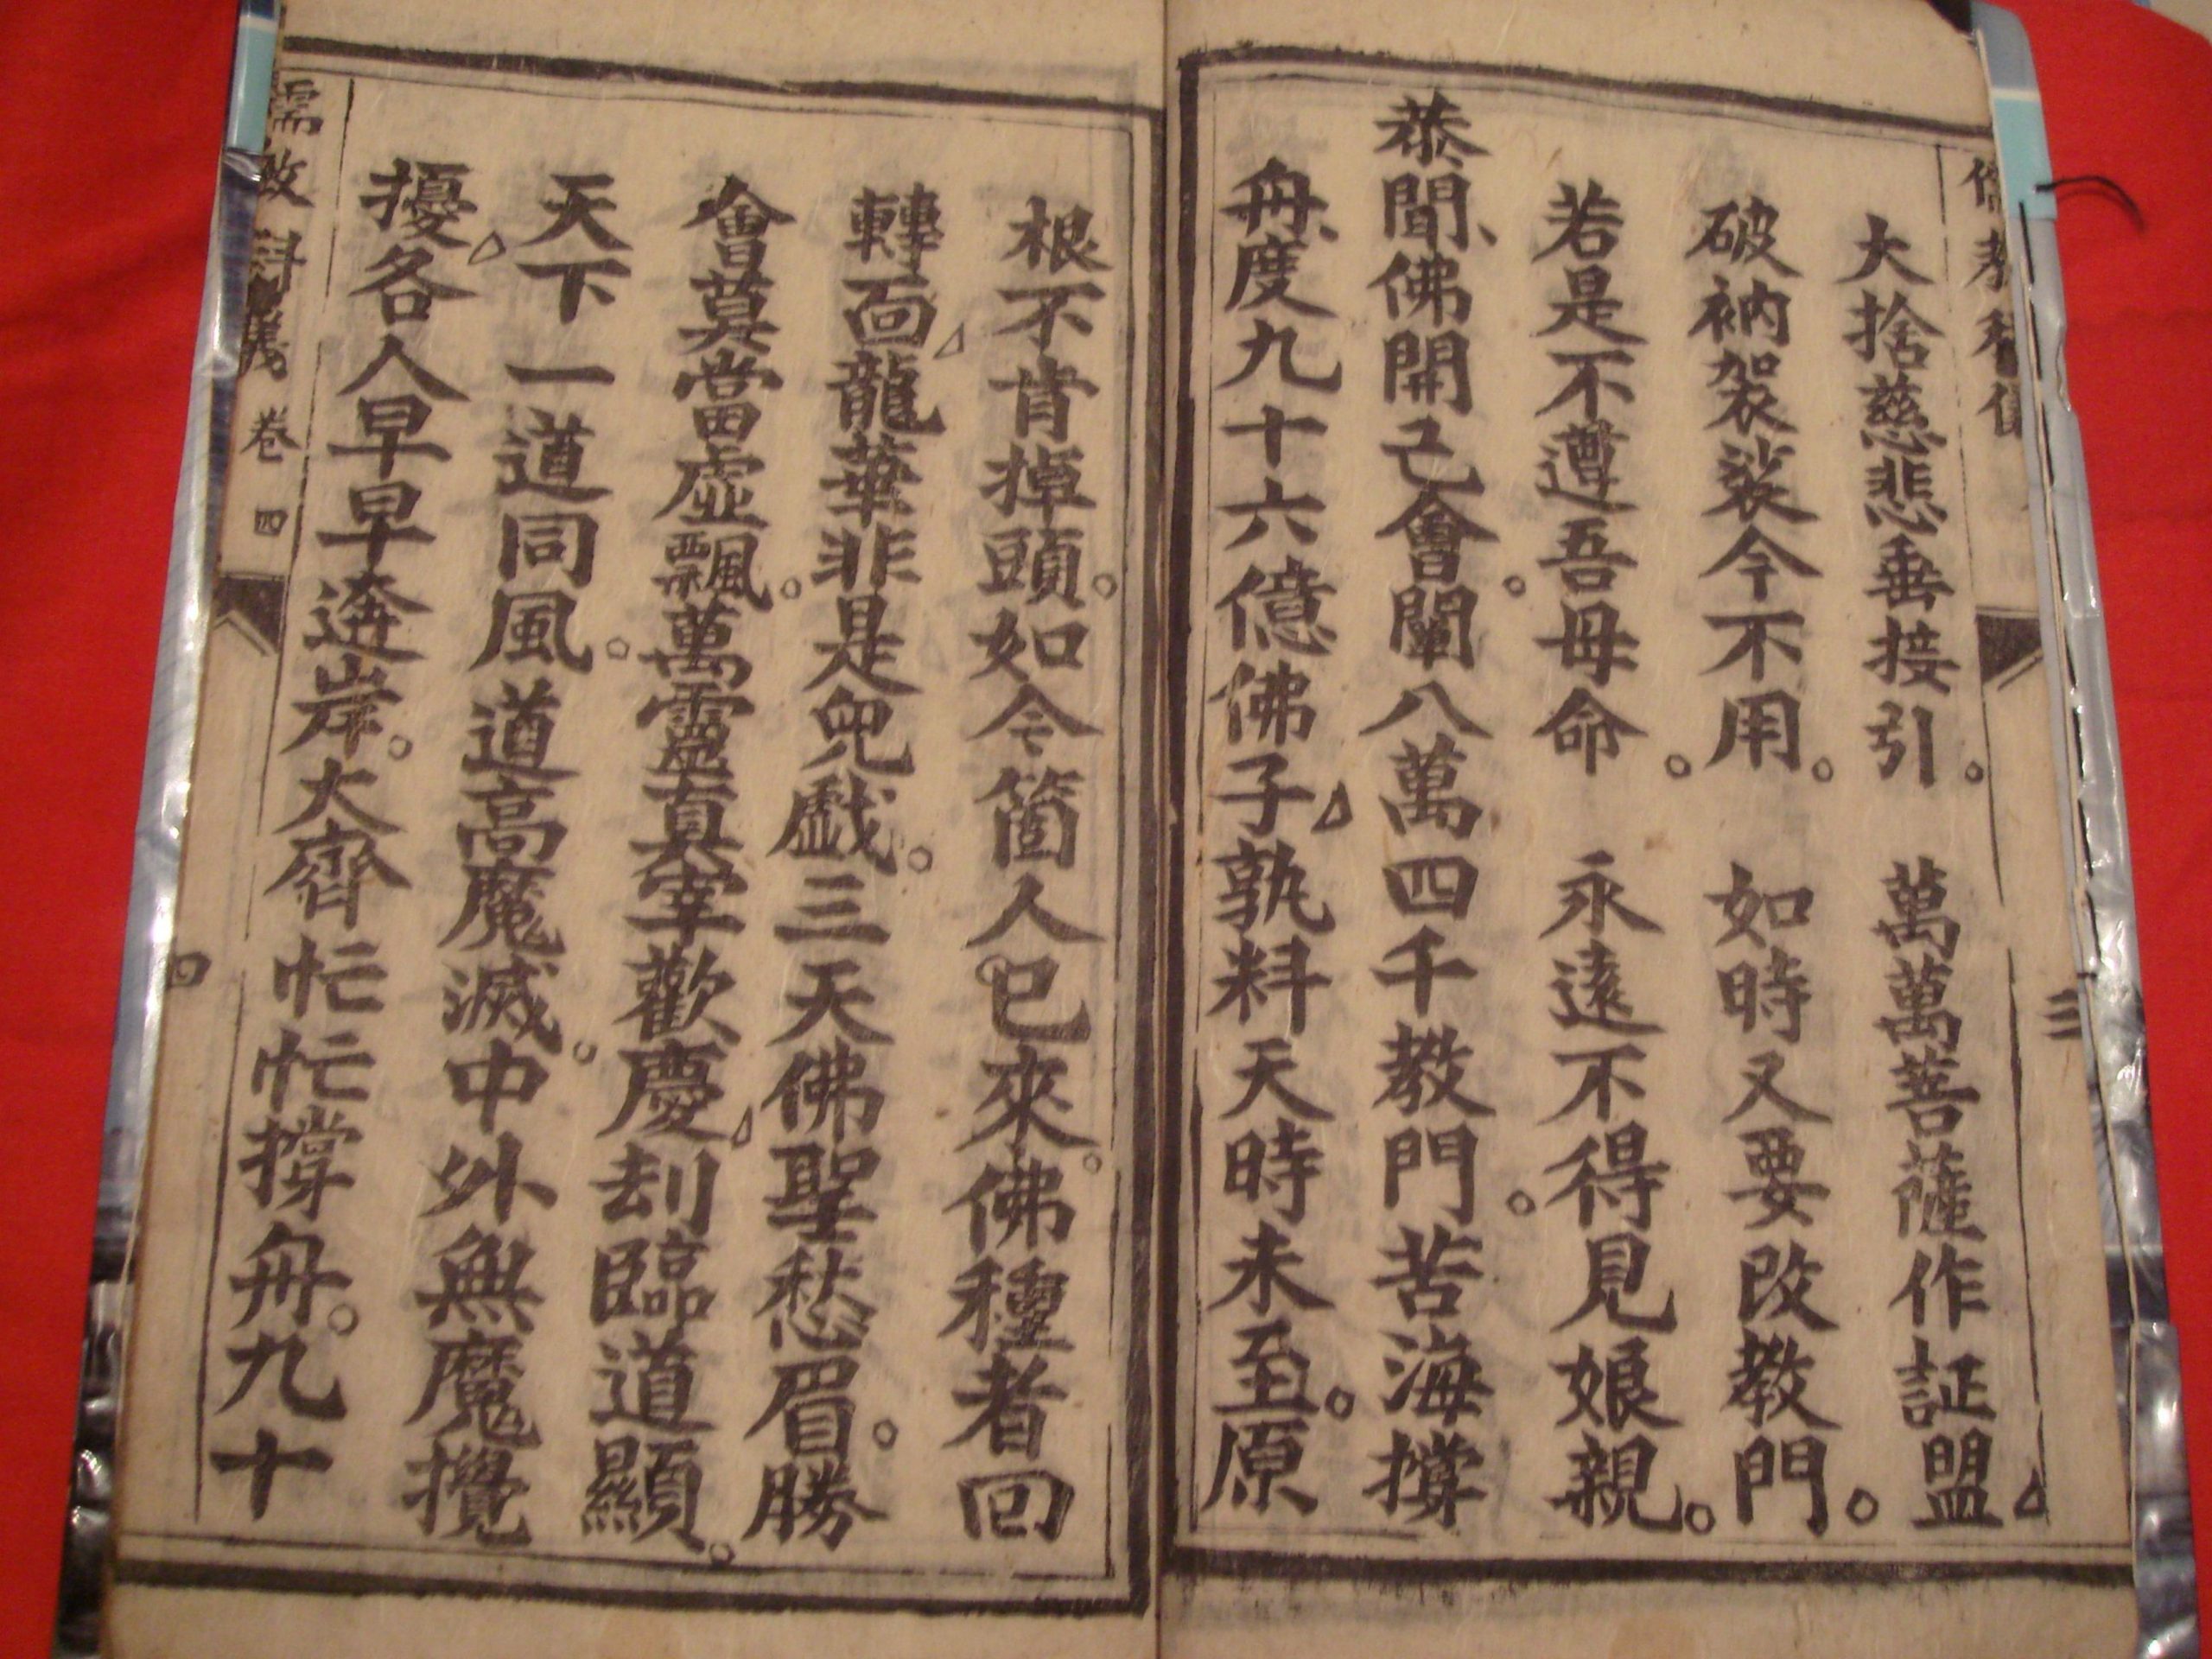 大捨慈悲垂接引。萬萬菩薩作証盟△
破衲袈裟今不用。如時又要改教門。
若是不遵吾母命。永遠不得見娘親。
恭聞、佛開己會。闡八萬四千教門。苦海撐
舟、度九十六億佛子△孰料天時未至。原
根不肯掉頭。如今箇人已來。佛種者回
轉面△龍華非是兒戲。三天佛聖愁眉。勝
會莫當虛飄。萬靈真宰歡慶△刦臨道顯。
天下一道同風。道高魔滅。中外無魔攪
擾△各人早早逩岸。大齊忙忙撐舟。九十
儒教科儀 卷四
四
三